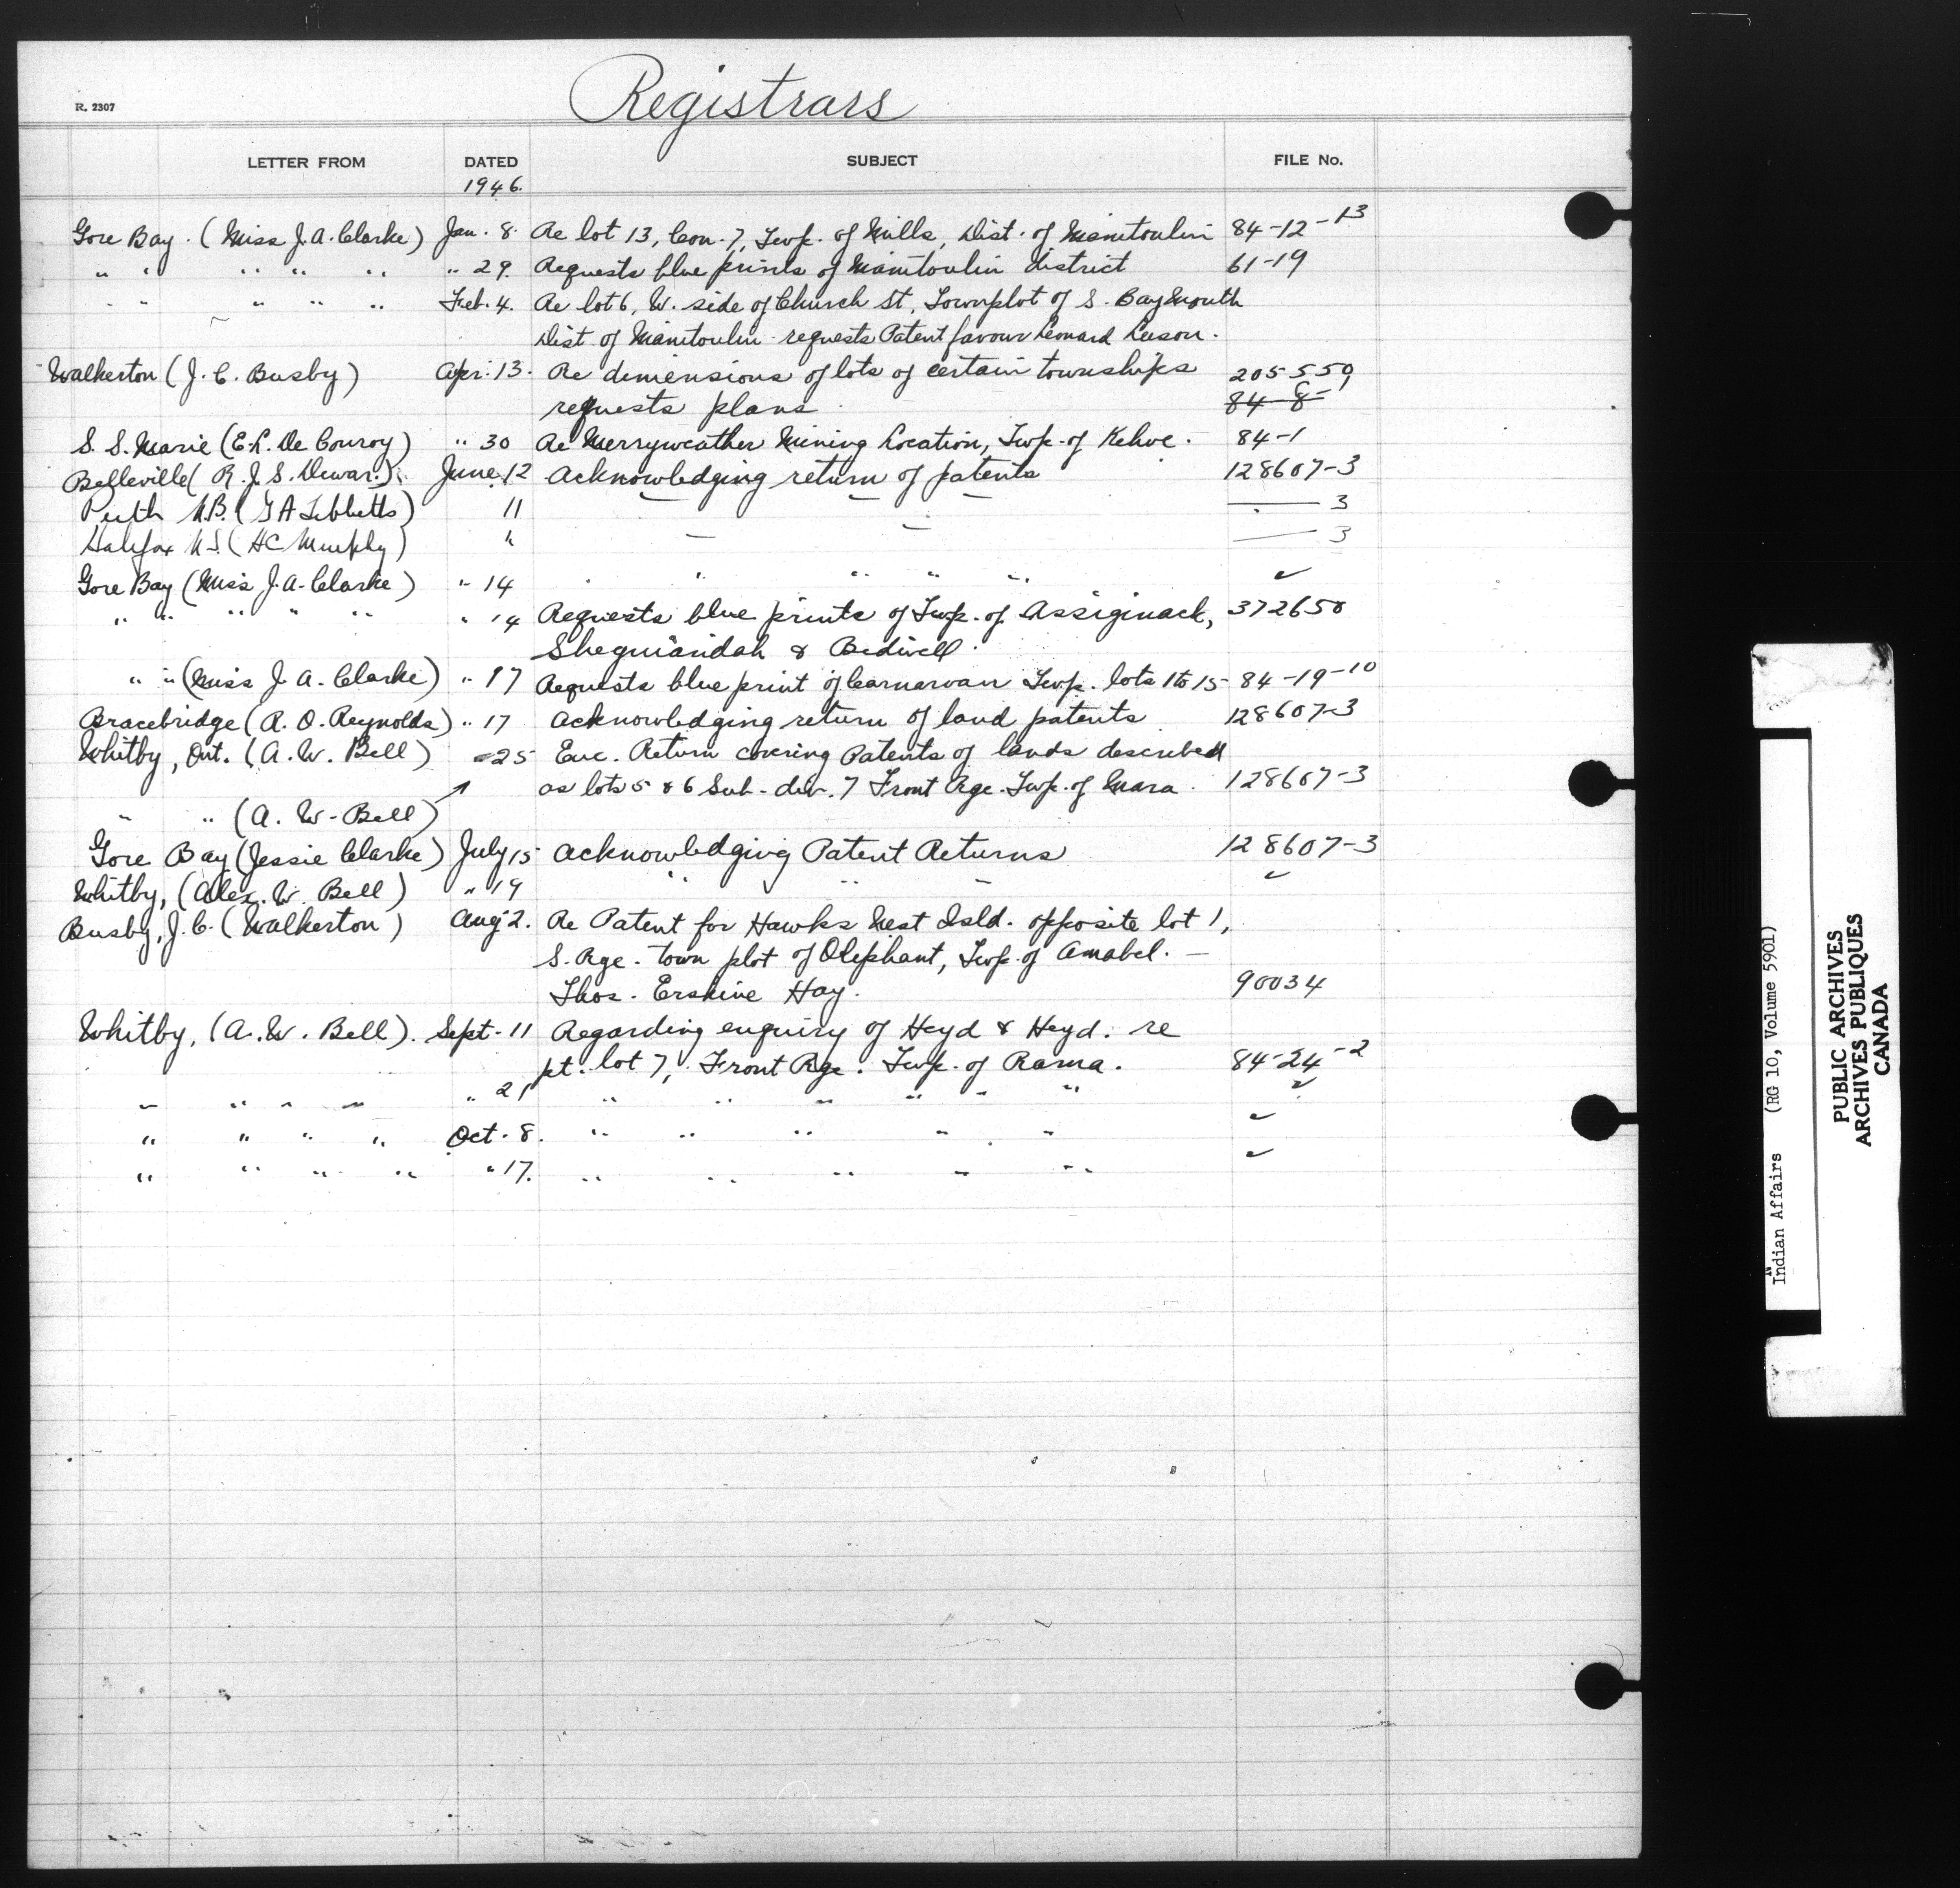 Registrars
R. 2307
LETTER FROM DATED SUBJECT FILE No.
1946.
Gore Bay. (Miss J. A. Clarke) Jan. 8. Re lot 13, Con. 7, Twp. of Mills, Dist. of Manitoulin 84-12-13
" " " " " " 29. Requests blue prints of Manitoulin district 61-19
" " " " " Feb. 4. Re lot 6, W. side of Church St, Townplot of S. Baymouth
Dist of Manitoulin requests Patent favour Leonard Leeson.
Walkerton (J. C. Busby) Apr. 13. Re dimensions of lots of certain townships 205550,
requests plans 84-8-
S. S. Marie (E. L. De Courcy) " 30 Re Merryweather Mining Location, Twp. of Kehoe. 84-1
Belleville (R. J. S. Dewar.) June 12 Acknowledging return of patents 128607-3
Perth N.B. (G A Tibbetts) 11 — — — — — 3
Halifax N.S. (HC Murphy) " — — — 3
Gore Bay (Miss J. A. Clarke) " 14 " " " " " ✓
" " " " " " 14 Requests blue prints of Twp. of Assiginack, 372650
Sheguiandah & Bidwell.
" " (Miss J. A. Clarke) " 17 Requests blue print of Carnarvan Twp. lots 1 to 15 84-19-10
Bracebridge (R. O. Reynolds) " 17 Acknowledging return of land patents 128607-3
Whitby, Ont. (A. W. Bell) " 25 Enc. Return covering Patents of lands described
as lots 5 & 6 Sub-div. 7 Front Rge. Twp. of Mara. 128607-3
" " (A. W. Bell)
Gore Bay (Jessie Clarke) July 15 Acknowledging Patent Returns 128607-3
Whitby, (Alex. W. Bell) " 19 " " " ✓
Busby, J. C. (Walkerton) Aug 2. Re Patent for Hawks Nest Isld. opposite lot 1,
S. Rge. Town plot of Oliphant, Twp. of Amabel. —
Thos. Erskine Hay. 90034
Whitby, (A. W. Bell). Sept. 11 Regarding enquiry of Heyd & Heyd. re
pt. lot 7, Front Rge. Twp. of Rama. 84-24-2
" " " " " 21 " " " " " " ✓
" " " " Oct. 8. " " " " " ✓
" " " " " 17. " " " " " ✓
Indian Affairs (RG 10, Volume 5901)
PUBLIC ARCHIVES
ARCHIVES PUBLIQUES
CANADA